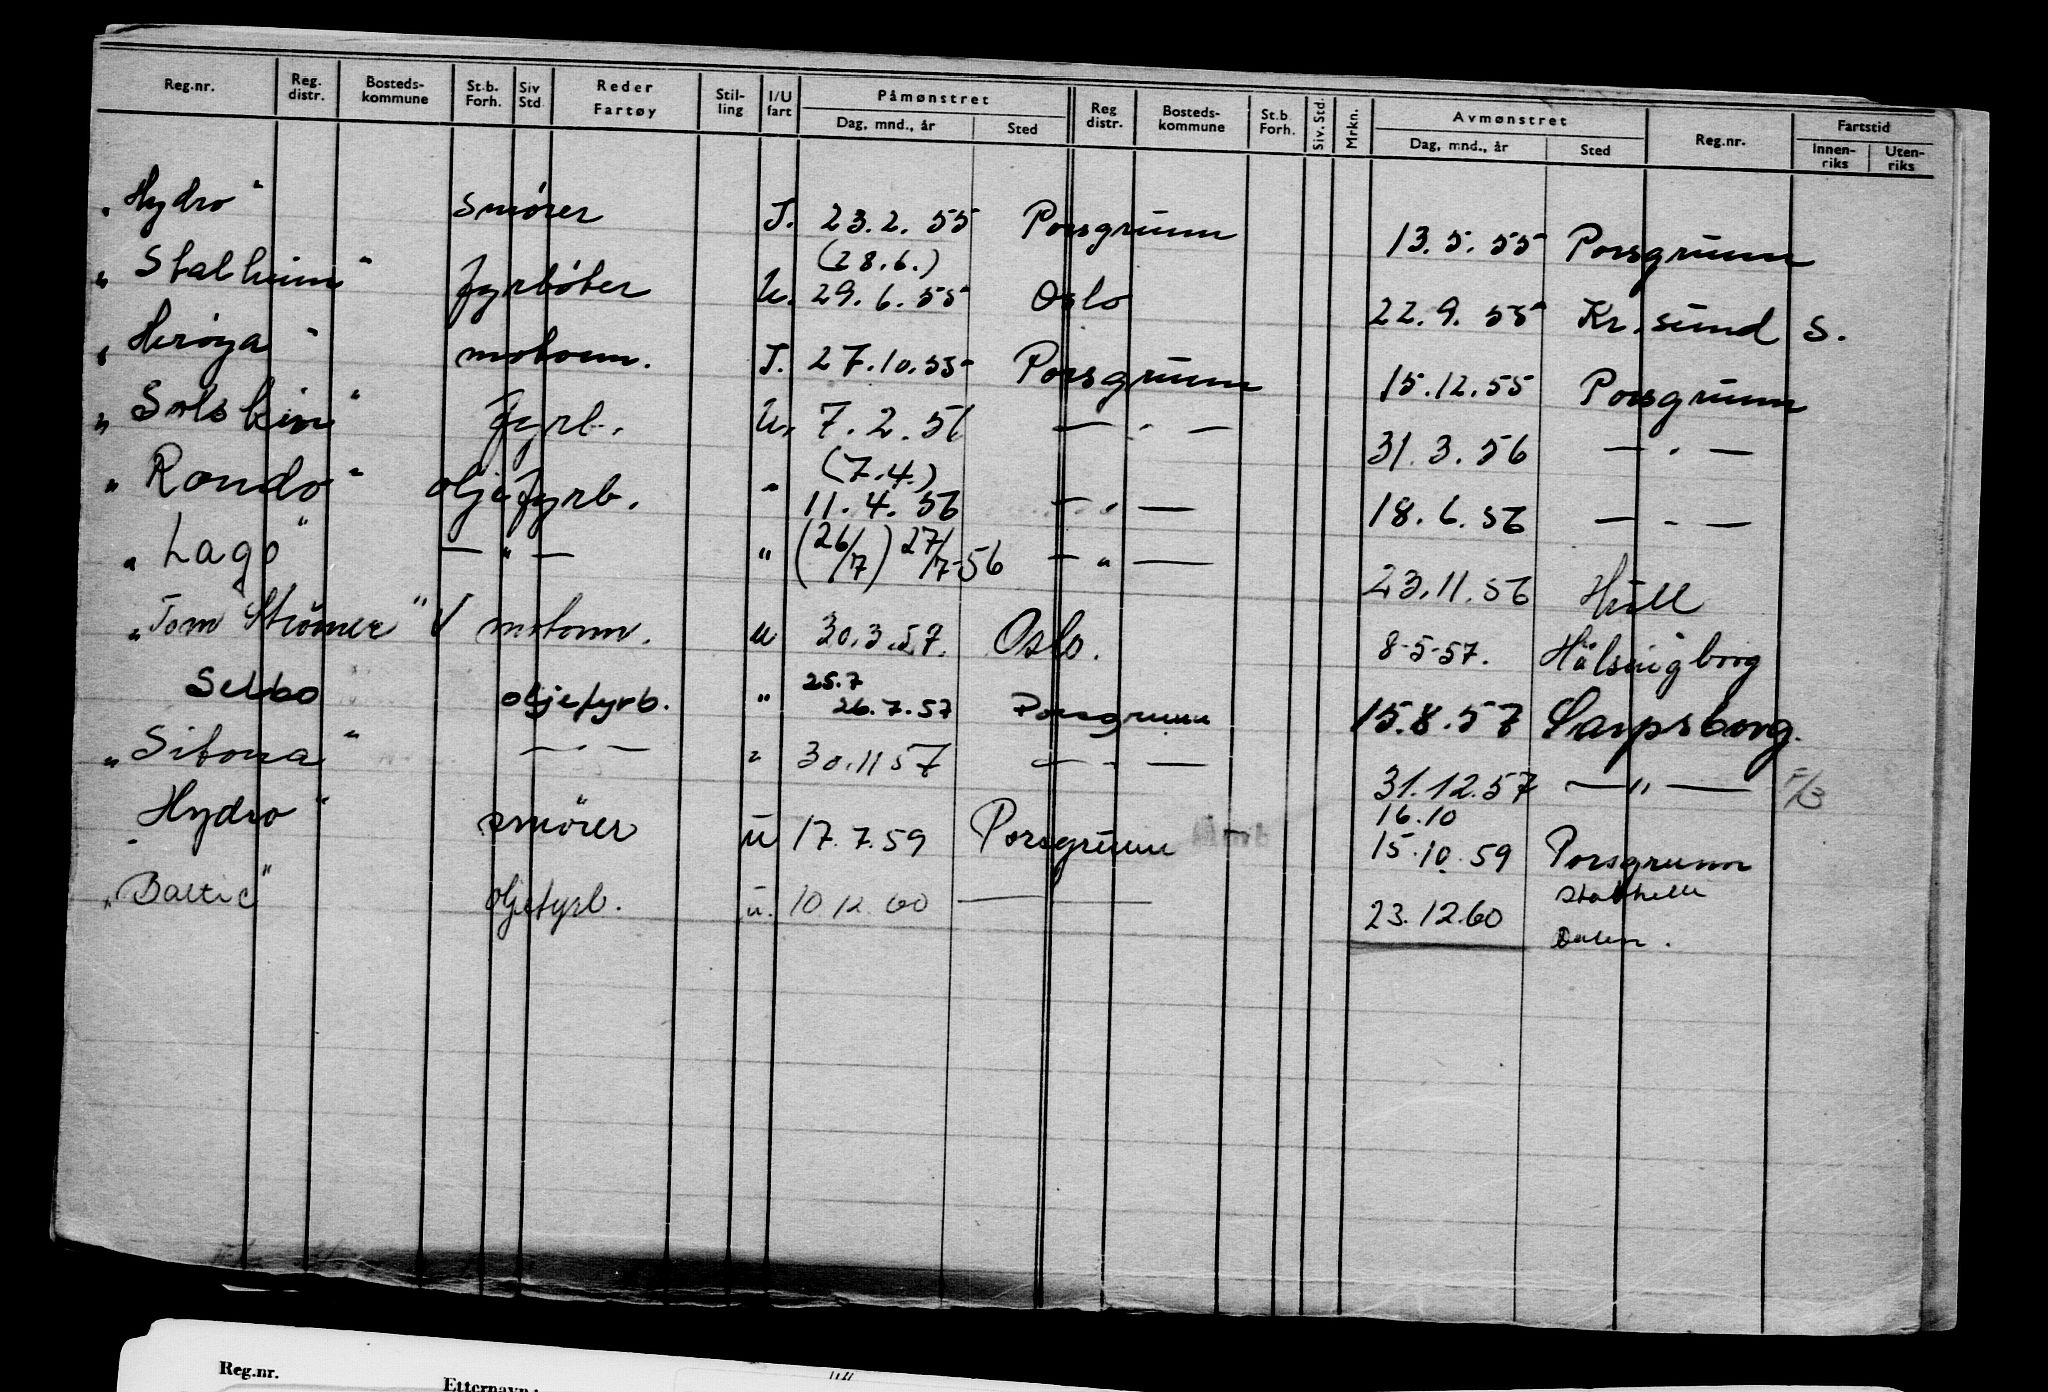 Reg.nr. Reg. distr. Bosteds-kommune St.b. Forh. Siv Std. Reder Fartøy Stil-ling I/U fart Påmønstret Dag, mnd., år Sted Reg distr. Bosteds-kommune St.b. Forh. Siv. Std. Mrkn. Avmønstret Dag, mnd., år Sted Reg.nr. Fartstid Innen-riks Uten-riks
"Hydro" smører I. 23.2.55 Porsgrunn 13.5.55 Porsgrunn
(28.6.)
"Stalheim" fyrbøter U. 29.6.55 Oslo 22.9.55 Kr.sund S.
"Herøya" motorm. I. 27.10.55 Porsgrunn 15.12.55 Porsgrunn
"Solskin" fyrb. U. 7.2.56 — " — 31.3.56 — " —
(7.4.)
"Rondo" oljefyrb. " 11.4.56 — " — 18.6.56 — " —
"Lago" — " — " (26/7) 27/7-56 — " — 23.11.56 Hull
"Tom Strømer" V motorm. u 30.3.57. Oslo. 8-5-57. Hälsingborg
25.7
Selbo oljefyrb. " 26.7.57 Porsgrunn 15.8.57 Sarpsborg.
"Sitona" — " — " 30.11 57 — " — 31.12.57 — " — F/3
16.10
"Hydro" smører u 17.7.59 Porsgrunn 15.10.59 Porsgrunn
Stathelle
"Baltic" oljefyrb. u. 10 12. 60 — 23.12.60 Dalen.
Reg.nr.
Etternavn